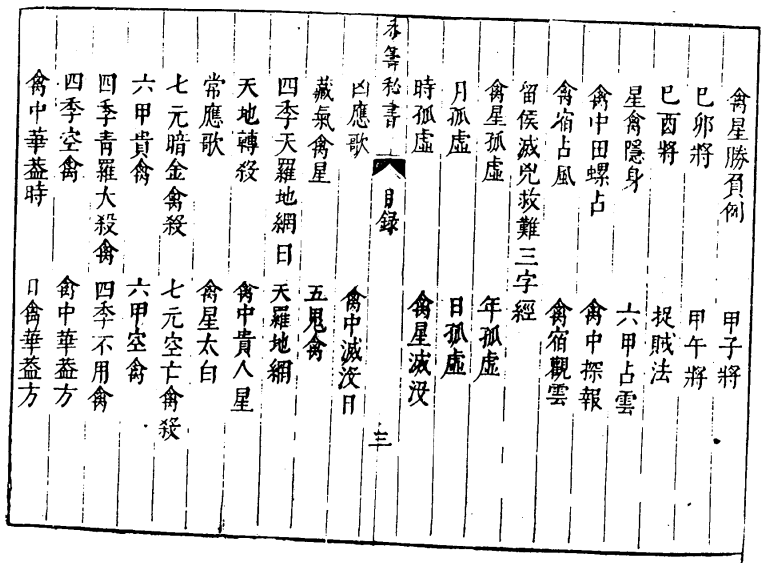 禽星勝負例　甲子將
巳卯將　甲午將
巳酉將　捉賊法
星禽隱身　六甲占雲
禽中田螺占　禽中探報
禽宿占風　禽宿觀雲
留侯滅兇救難三字經
禽星孤虛　年孤虛
月孤虛　日孤虛
時孤虛　禽星滅没
禽籌秘書　目録　三
凶應歌　禽中滅没日
藏氣禽星　五鬼禽
四季天羅地網日　天羅地網
天地轉殺　禽中貴人星
常應歌　禽星太白
七元暗金禽殺　七元空亡禽殺
六甲貴禽　六甲空禽
四季青羅大殺禽　四季不用禽
四季空禽　禽中華蓋方
禽中華蓋時　日禽華蓋方